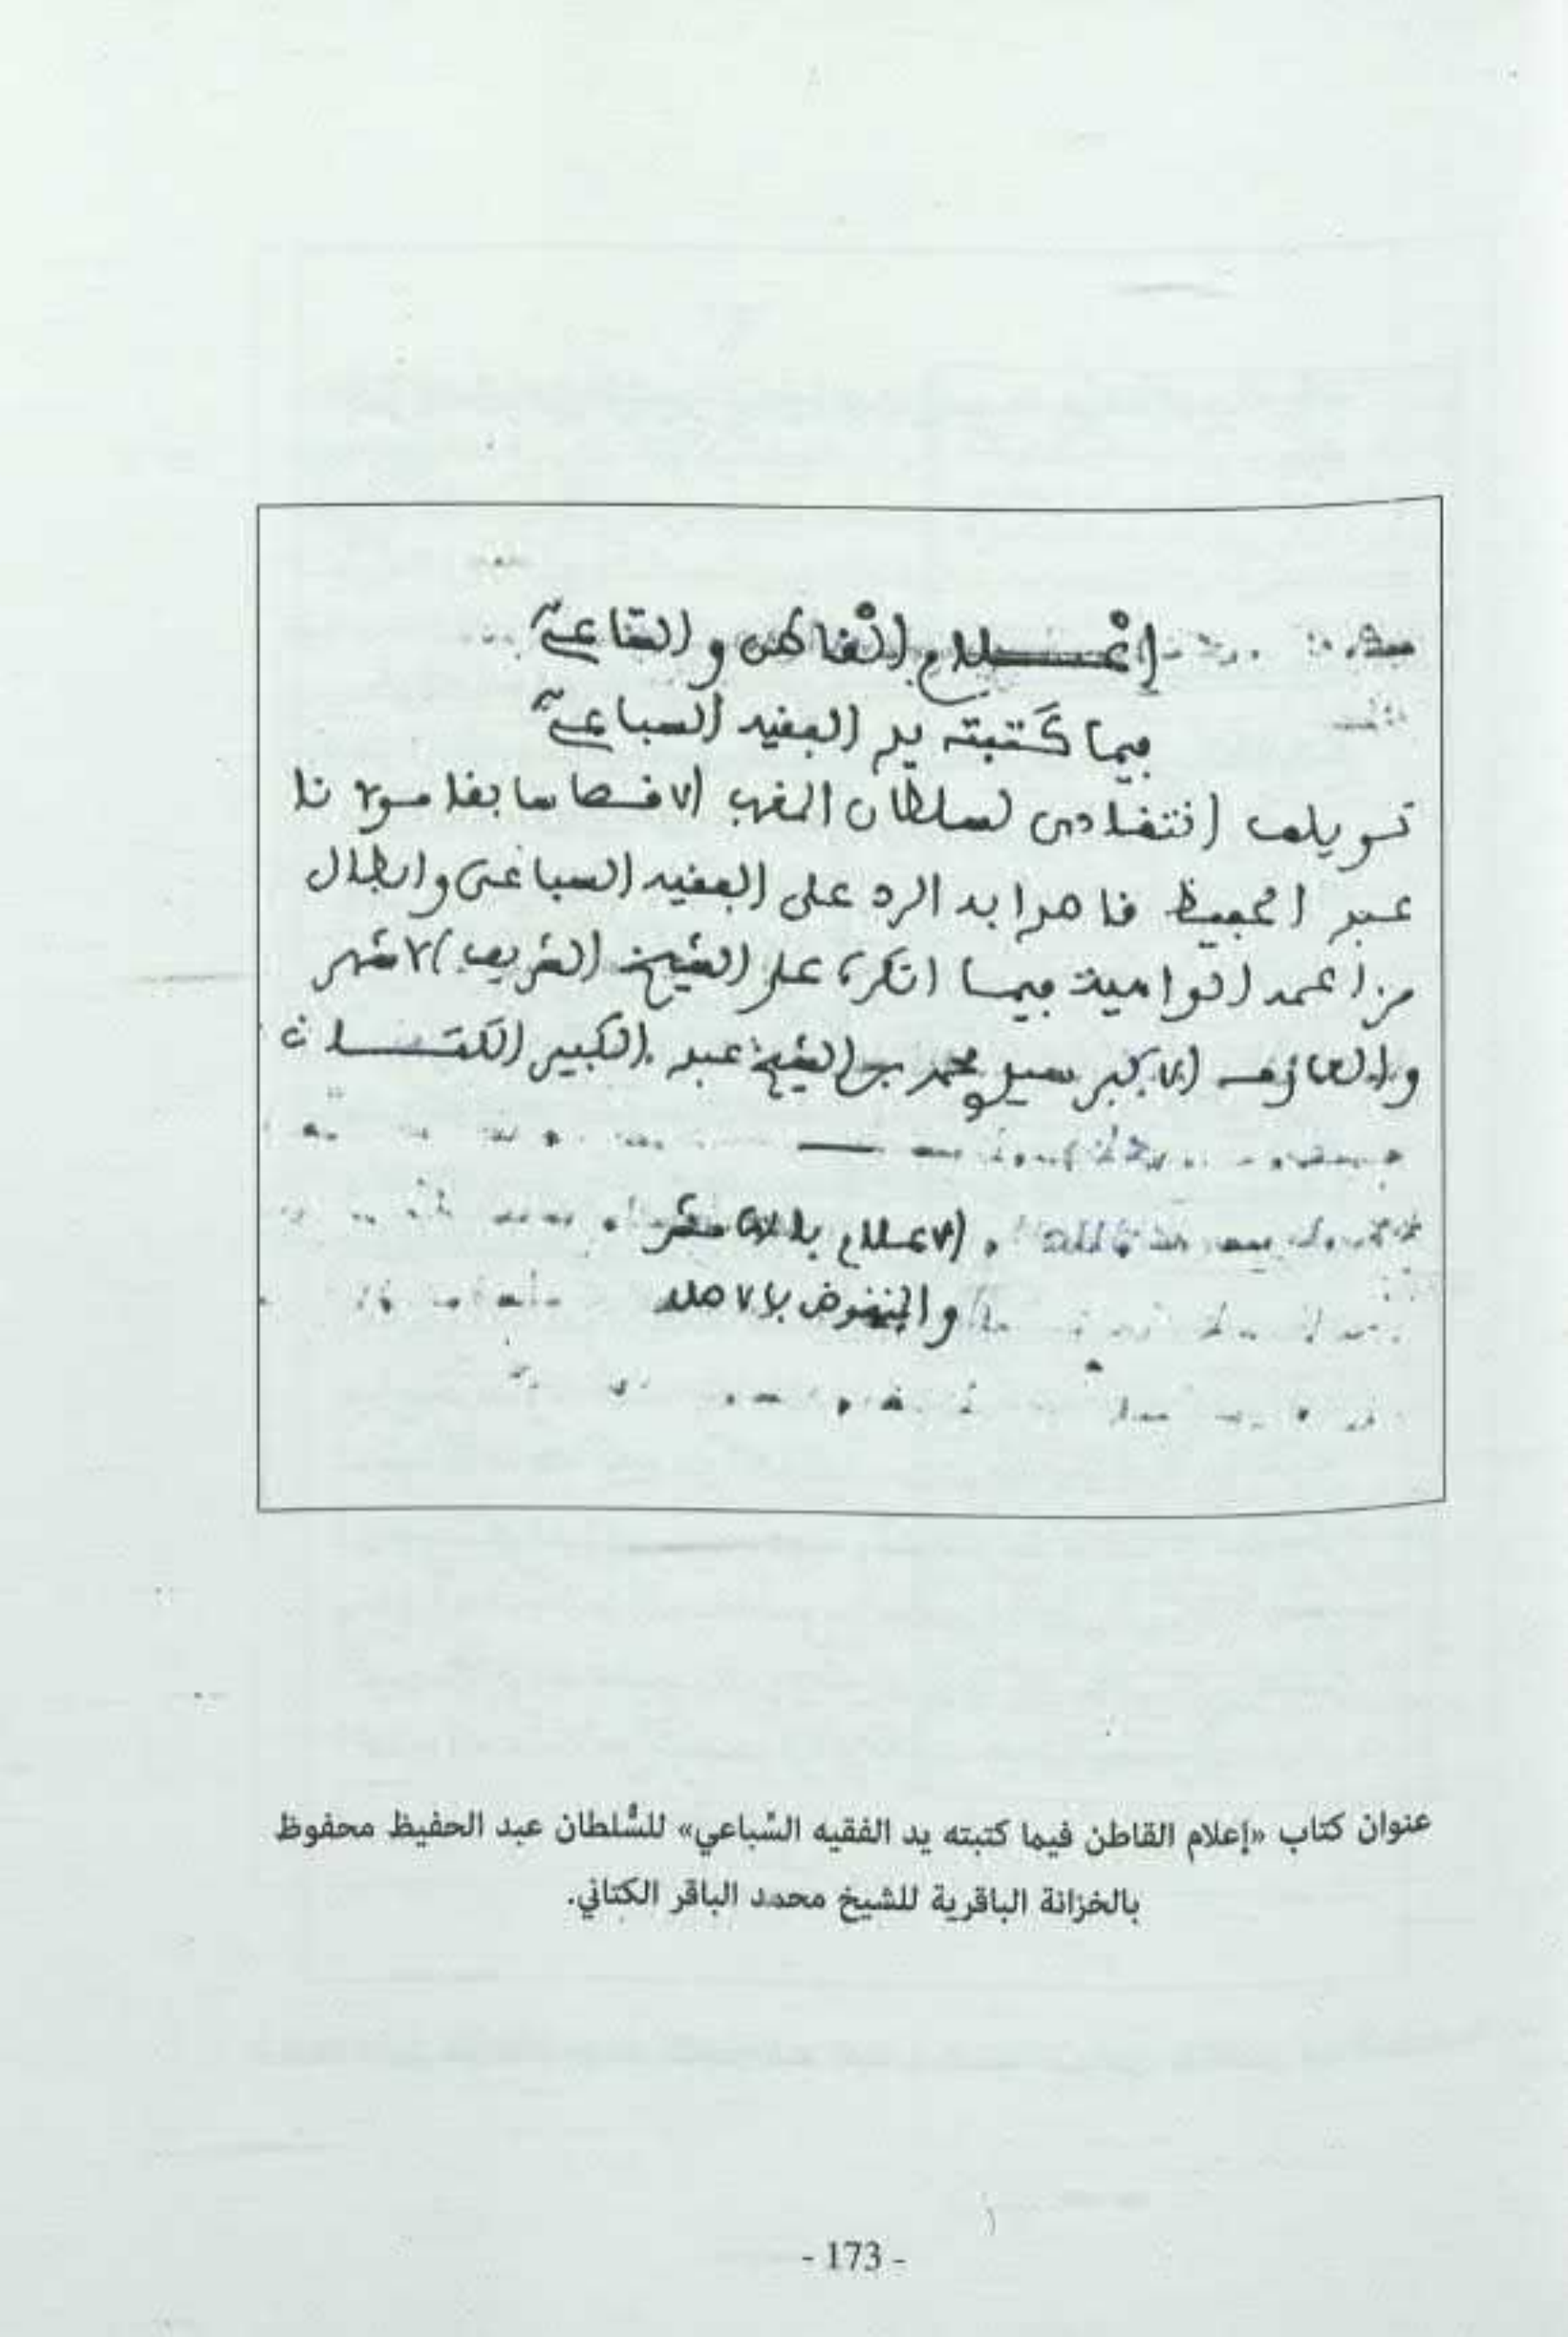 إعلام القاطن والقاعي
فيما كتبته يد الفقيه السباعي
تويلف انتقادي لسلطان المغرب الاقصا سابقا مولانا
عبد الحفيظ قاصدا به الرد على الفقيه السباعي وابطال
مزاعمه الواهية فيما انكره على الشيخ الشريف الاشهر
والعارف الاكبر سيدي محمد بن الشيخ عبد الكبير الكتاني
الاعلام بلا
والنهوض بلا
عنوان كتاب «إعلام القاطن فيما كتبته يد الفقيه السّباعي» للسُّلطان عبد الحفيظ محفوظ
بالخزانة الباقرية للشيخ محمد الباقر الكتاني.
- 173 -